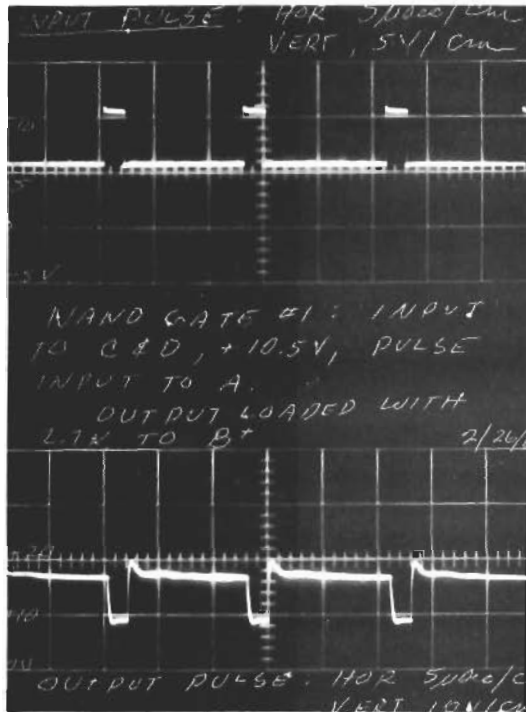 INPUT PULSE: HOR 5µsec/cm
VERT, 5V/cm
-5V
NAND GATE #1: INPUT
TO C & D, +10.5V, PULSE
INPUT TO A.
OUTPUT LOADED WITH
2.7K TO B+
2/26/
+10
0V
OUTPUT PULSE: HOR 5µsec/c
VERT 10V/cm